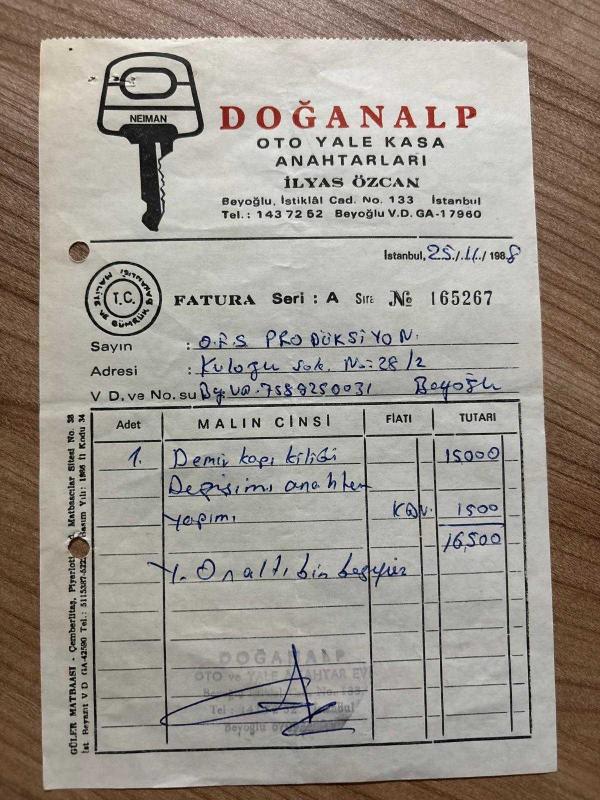 NEIMAN
DOĞANALP
OTO YALE KASA
ANAHTARLARI
İLYAS ÖZCAN
Beyoğlu, İstiklâl Cad. No. 133 İstanbul
Tel.: 143 72 52 Beyoğlu V.D. GA-17960
İstanbul, 25/11/1988
T.C.
MALİYE ve GÜMRÜK BAKANLIĞI
FATURA Seri : A Sıra № 165267
Sayın : O.F.S PRODÜKSİYON.
Adresi : Kuloğu sok. No: 28/2
V D. ve No. su Bey VD. 7589250031 Beyoğlu
Adet MALIN CİNSİ FİATI TUTARI
1. Demir kapı kilidi 15000
Değişimi anahtar
yapımı KDV. 1500
16,500
Y. Onaltı bin beşyüz
DOĞANALP
OTO ve YALE ANAHTAR EVİ
No. 133
Tel :
Beyoğlu
GÜLER MATBAASI - Çemberlitaş, Matbaacılar Sitesi No. 38
İst Beyazıt V D GA-42590 Tel.: Basım Yılı : 1986 İl Kodu 34